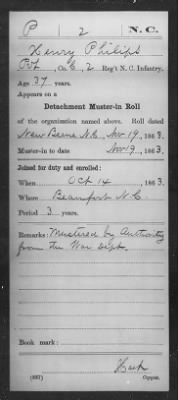 P 2 N.C.
Henry Philips
Pvt., Co. E, 2 Reg't N. C. Infantry.
Age 37 years.
Appears on a
Detachment Muster-in Roll
of the organization named above. Roll dated
New Berne N.C., Nov 19, 1863.
Muster-in to date Nov 19, 1863.
Joined for duty and enrolled:
When Oct 14, 1863.
Where Beaufort N.C.
Period 3 years.
Remarks: Mustered by Authority
from the War Dept.
Book mark:
(337)
Copyist.